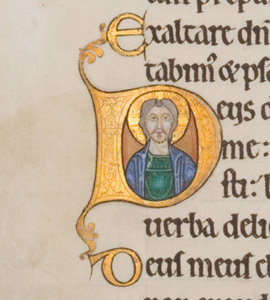 Exaltare dn̄
tabim᷒ & ps
Deus d
me:
sti:
uerba deli
Deus meus